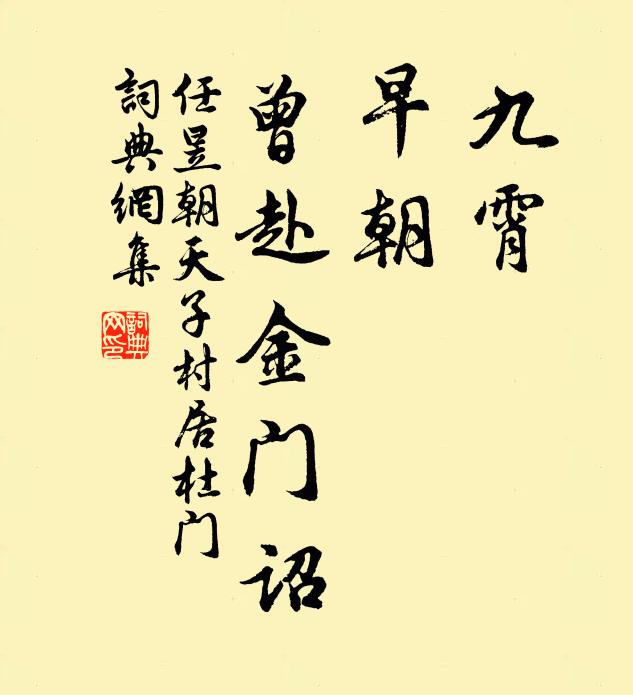 九霄
早朝
曾赴金门詔
任昱朝天子村居杜门
詞典網集
詞典网印